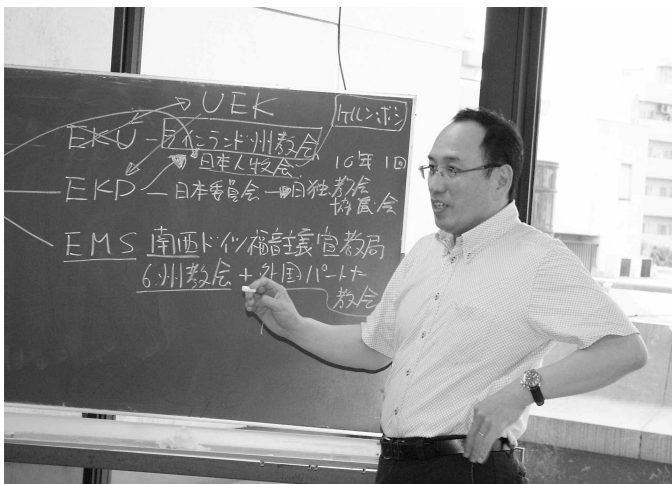 UEK
ケルン・ボン
EKU ー ラインランド州教会
日本人牧会
10年1回
EKD ー 日本委員会 ー 日独教会
協議会
EMS 南西ドイツ福音主義宣教局
6州教会 + 外国パートナー
教会